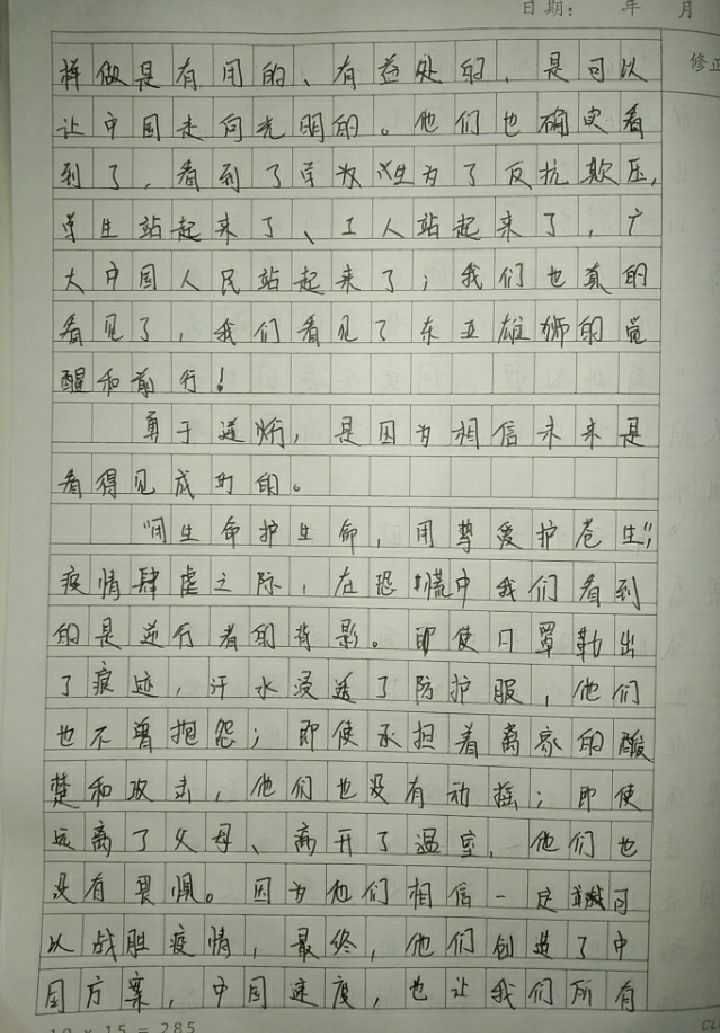 日期： 年 月
修正
样做是有用的、有益处的，是可以
让中国走向光明的。他们也确实看
到了，看到了学生为了反抗欺压，
学生站起来了、工人站起来了，广
大中国人民站起来了；我们也真的
看见了，我们看见了东亚雄狮的觉
醒和前行！
勇于逆行，是因为相信未来是
看得见成功的。
“用生命护生命，用尊爱护苍生”，
疫情肆虐之际，在恐慌中我们看到
的是逆行者的背影。即使口罩勒出
了痕迹，汗水浸透了防护服，他们
也不曾抱怨；即使承担着离家的酸
楚和攻击，他们也没有动摇；即使
远离了父母、离开了温室，他们也
没有畏惧。因为他们相信一定可
以战胜疫情，最终，他们创造了中
国方案，中国速度，也让我们所有
19 × 15 = 285